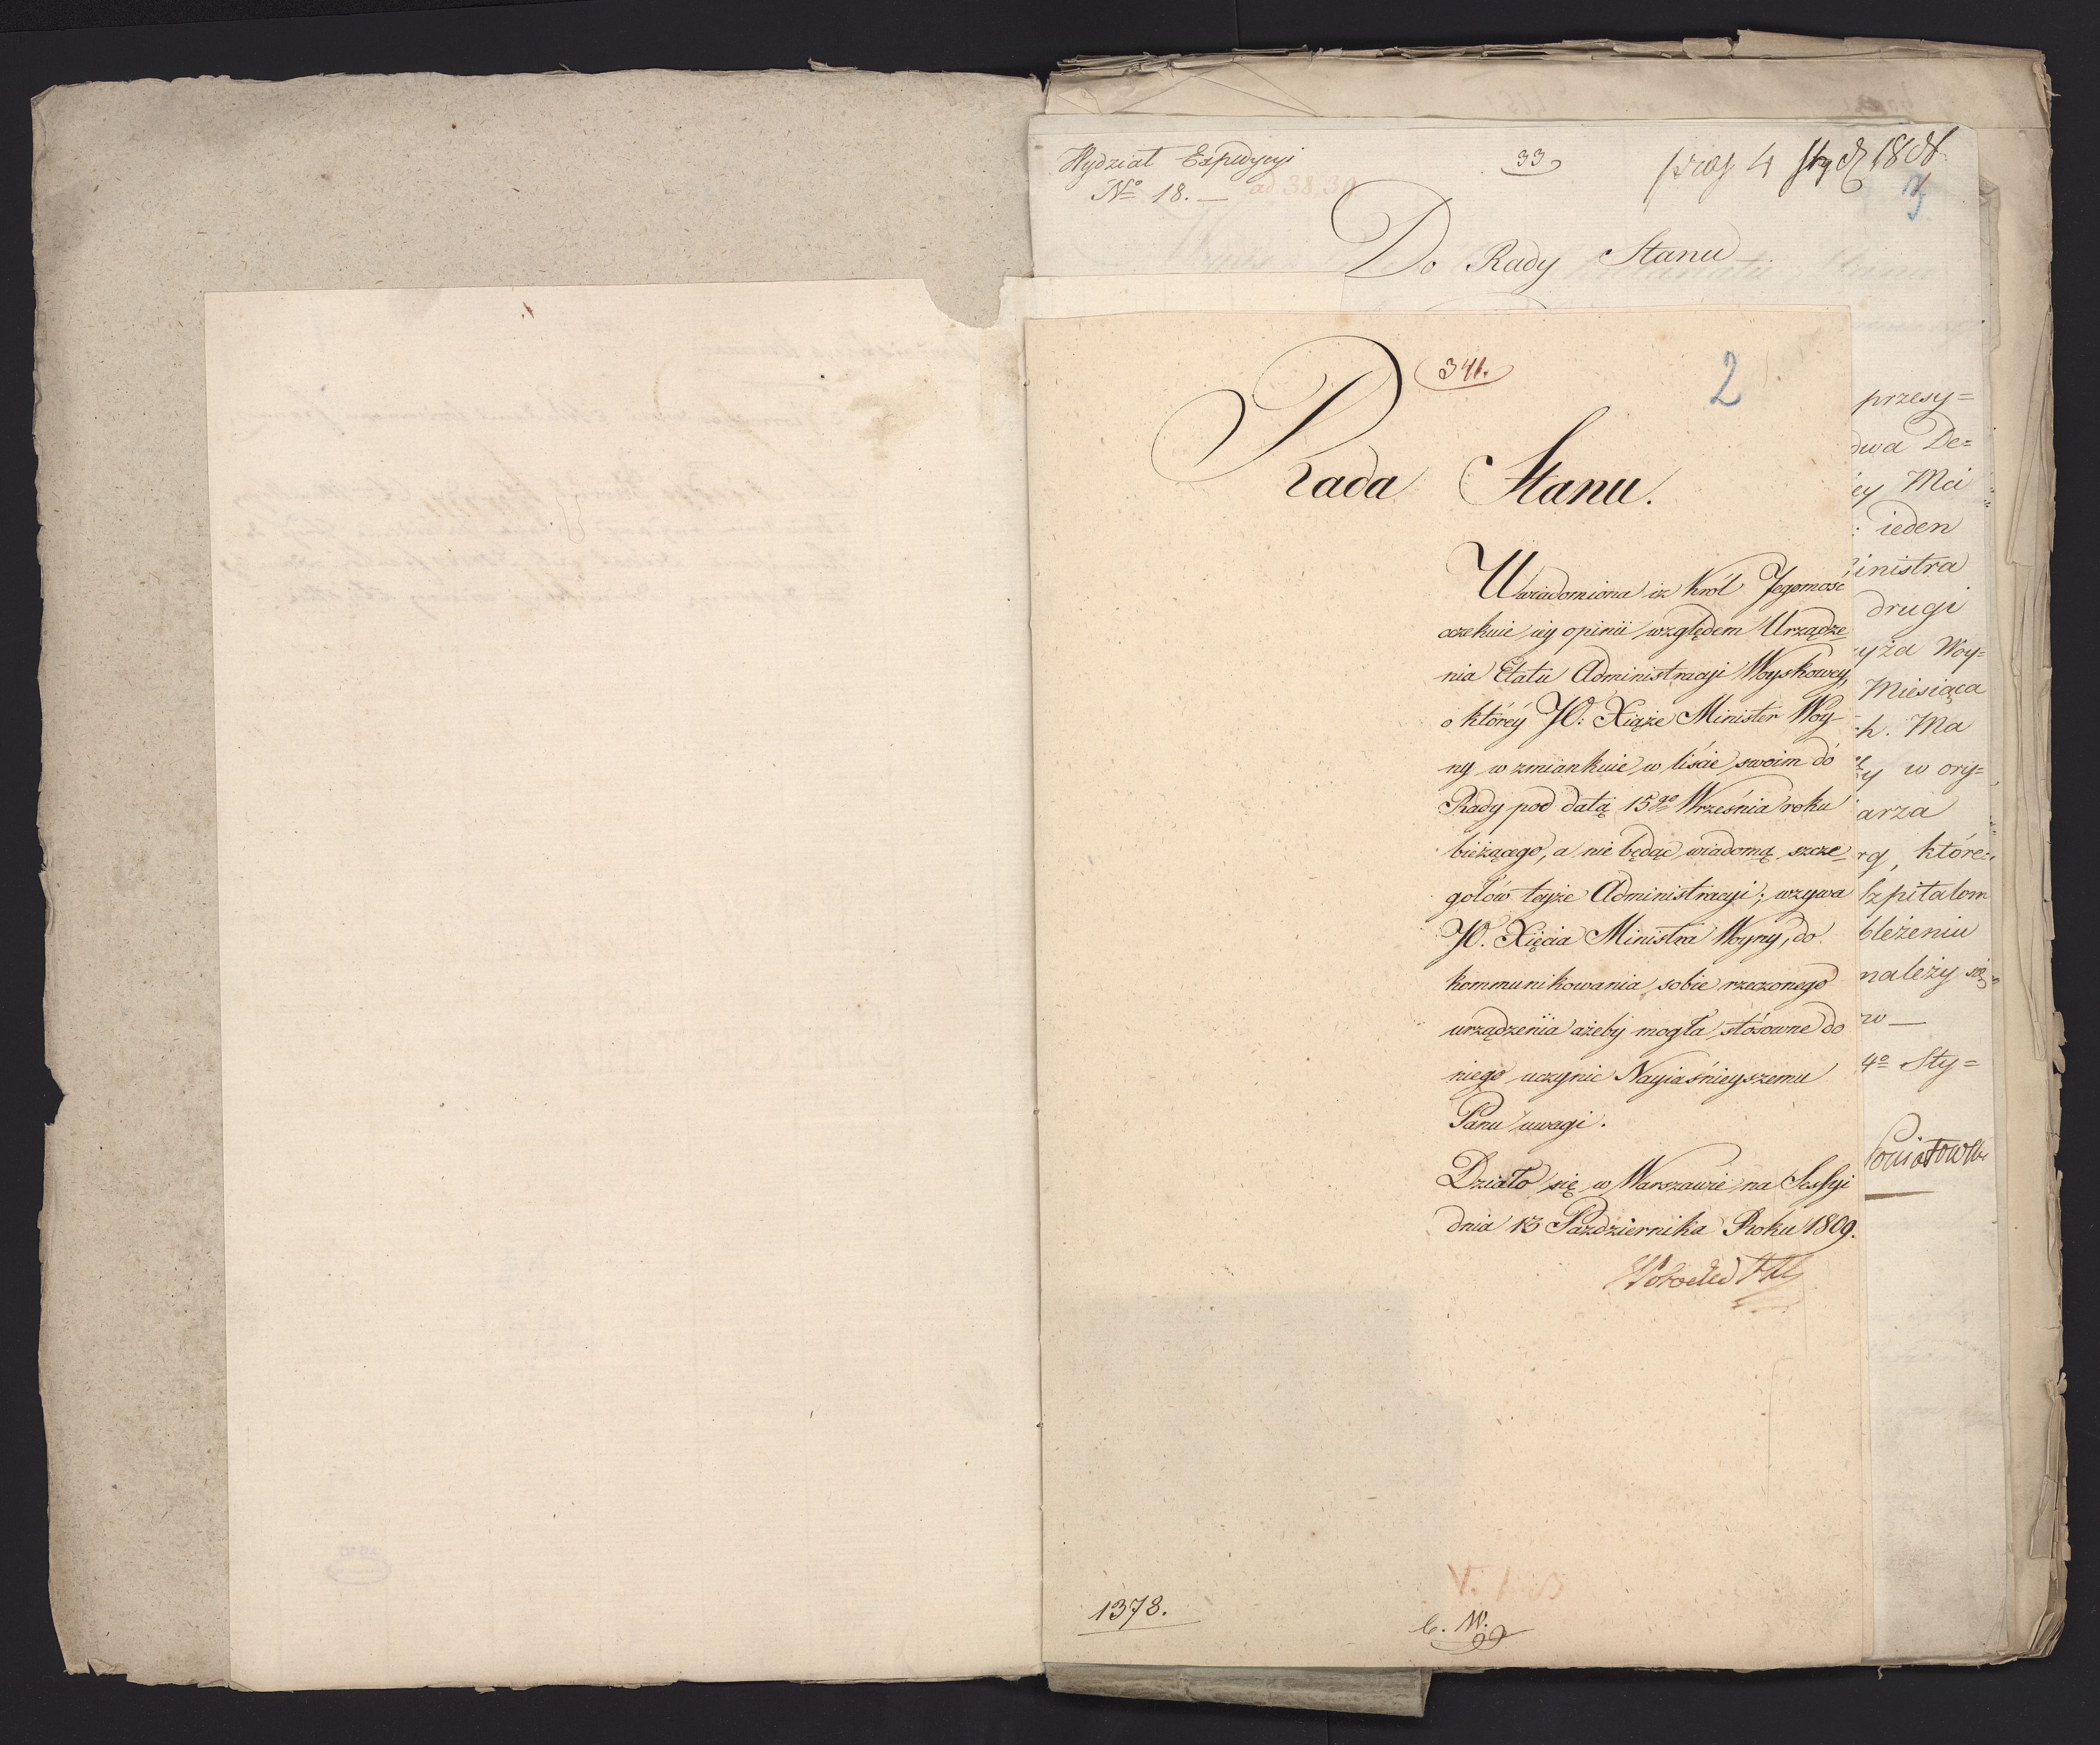 Wydział Expedycyi
Nº 18. —
ad 38.39
33
4 1808
3
Do Rady Stanu
341.
2
Rada Stanu.
Uwiadomiona iż Król Jegomość
oczekuie iey opinii względem Urządze
nia Etatu Administracyi Woyskowey,
o któréy JO: Xiąże Minister Woy-
ny wzmiankuie w liście swoim do
Rady pod datą 15go Września roku
bieżącego, a nie będąc wiadomą szcze-
gołów teyże Administracyi; wzywa
JO. Xięcia Ministra Woyny, do
kommunikowania sobie rzeczonego
urządzenia ażeby mogła stósowne do
niego uczynić Nayiaśnieyszemu
Panu uwagi.
Działo się w Warszawie na Sessyi
dnia 13 Października Roku 1809.
przesy=
dwa De=
ey Mci
: ieden
inistra
drugi
yża Woy=
Miesiąca
ch. Ma
y w ory=
arza
rą, które
Szpitalom
bleżeniu
należy się
w —
4º Sty=
Poniatowski
1373.